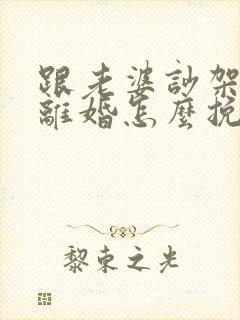 跟老婆訪架
離婚怎麼挽
黎束之光